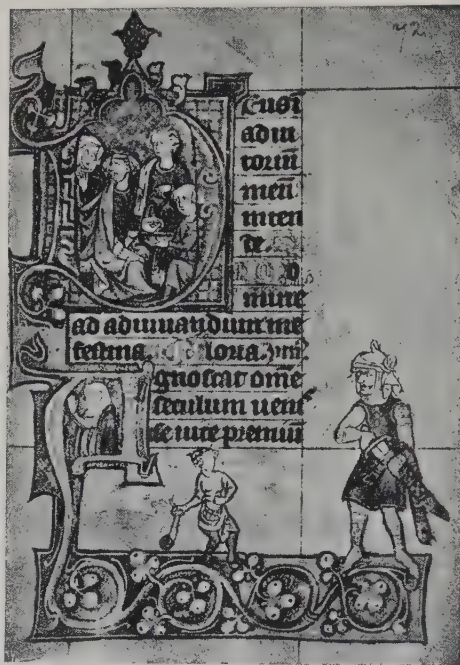 eusı
adiu
toriū
meū
inten
de.
Do
mine
ad adiuuandum me
festina. Gloria.
gnoscat om̄e
seculum uenı
se uite premiū